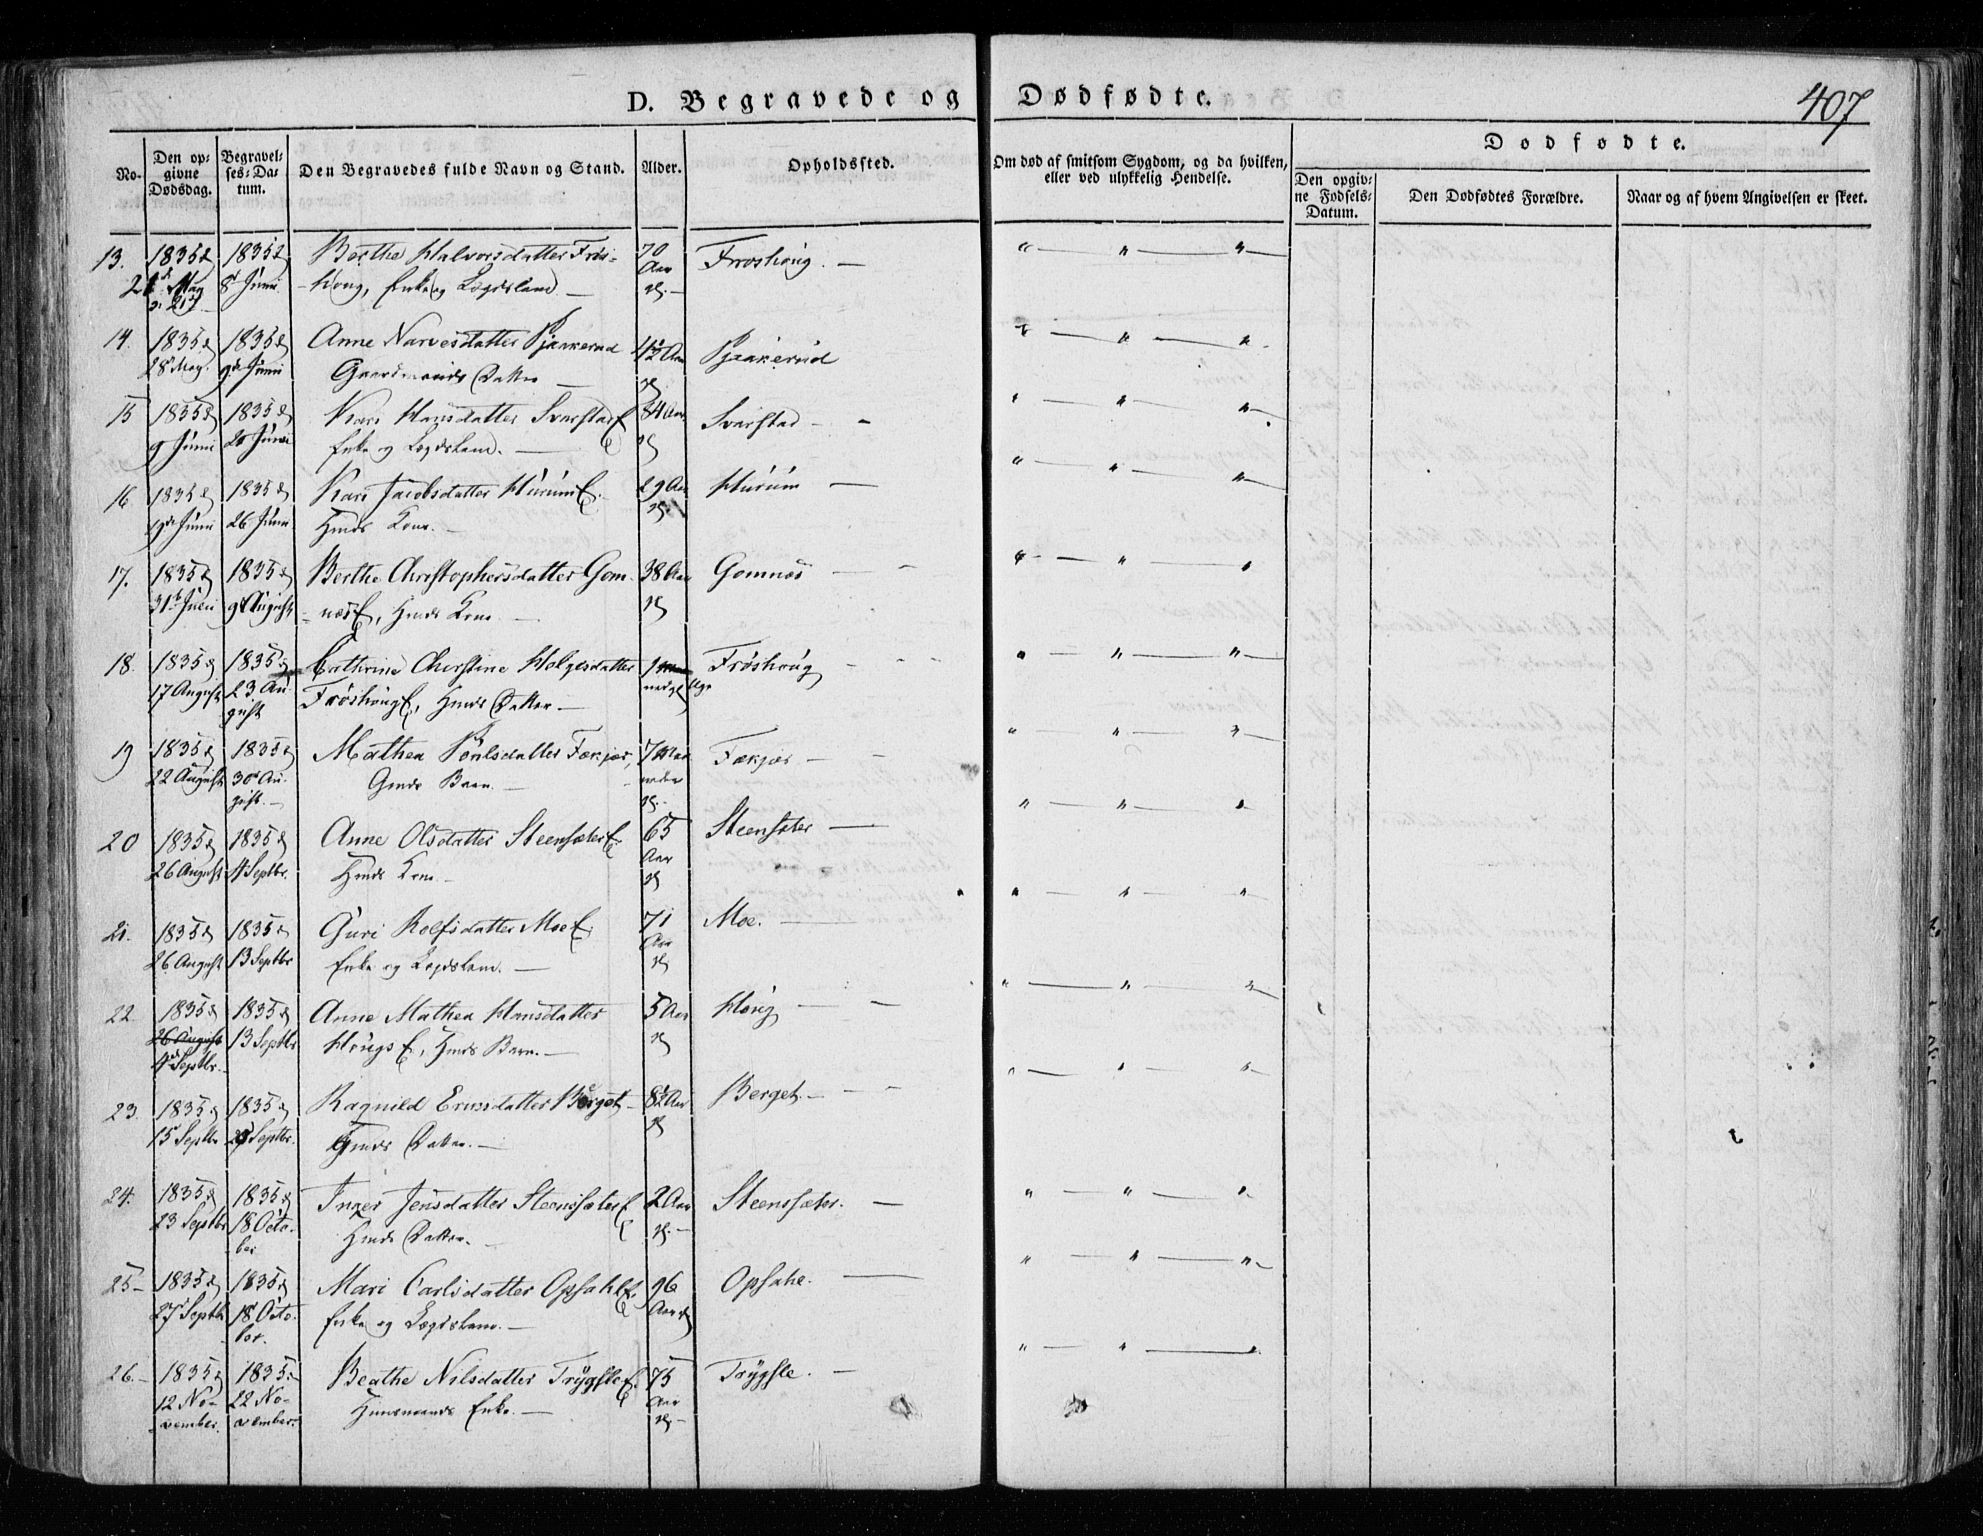 407
D. Begravede og Dødfødte.
No.
Den opgivne Dødsdag.
Begravelses-Datum.
Den Begravedes fulde Navn og Stand.
Alder.
Opholdssted.
Om død af smitsom Sygdom, og da hvilken, eller ved ulykkelig Hendelse.
Dødfødte.
Den opgivne Fødsels-Datum.
Den Dødfødtes Forældre.
Naar og af hvem Angivelsen er skeet.
13. 1835 1835 Berthe Halvorsdatter Frøs- 70 Frøshoug. — " — " — "
May 8 Juni -houg, Enke og Lægdslem — Aar
14. 1835 1835 Anne Narvesdatter Pjaakerud Aar Pjaakerud " — " — "
28 May. 9de Juni Gaardmands Datter —
15 1835 1835 Kari Hansdatter Svarstad 84 Aar Svarstad — " — " — "
9 Juni Juni Enke og Lægdslem. —
16 1835 1835 Kari Jacobsdatter Hurum 29 Aar Hurum — " — " — "
Juni 26 Juni Hmds Kone. —
17. 1835 1835 Berthe Christophersdatter Gom- 38 Aar Gomnæs — " — " — "
31te Juli 9 August -næs, Hmds Kone —
18. 1835 1835 Cathrine Christine Holgesdatter 1 Frøshoug — " — " — "
17 August 23 Au- Frøshoug, Hmds Datter —
gust
19 1835 1835 Mathea Poulsdatter Fækjær, 7 Maa- Fækjær — " — " — "
22 August 30 Au- Gmds Barn. — neder
gust. —
20 1835 1835 Anne Olsdatter Steensæter 65 Steensæter — " — " — "
26 August 4 Septbr. Hmds Kone — Aar
21. 1835 1835 Guri Rolfsdatter Moe 71 Moe. — " — " — "
26 August 13 Septbr Enke og Lægdslem. — Aar
22. 1835 1835 Anne Mathea Hansdatter 5 Aar Houg — " — " — "
26 August 13 Septbr Hougs, Hmds Barn. —
4de Septbr.
23. 1835 1835 Ragnild Ernsdatter Berget — Aar Berget. — " — " — "
15 Septbr Septbr. Gmds Datter. —
24. 1835 1835 Inger Jensdatter Steensæter 2 Aar Steensæter. — " — " — "
23 Septbr 18 Octo- Hmds Datter. —
ber
25 — 1835 1835 Mari Carlsdatter Opsahl 96 Opsahl. — " — " — "
27 Septbr 18 Octo- Enke og Lægdslem. — Aar
ber.
26. — 1835 1835 Beathe Nilsdatter Trygsle 75 Trygsle. — " — " — "
12 No- 22 No- Huusmands Enke. — Aar
vember. vember.